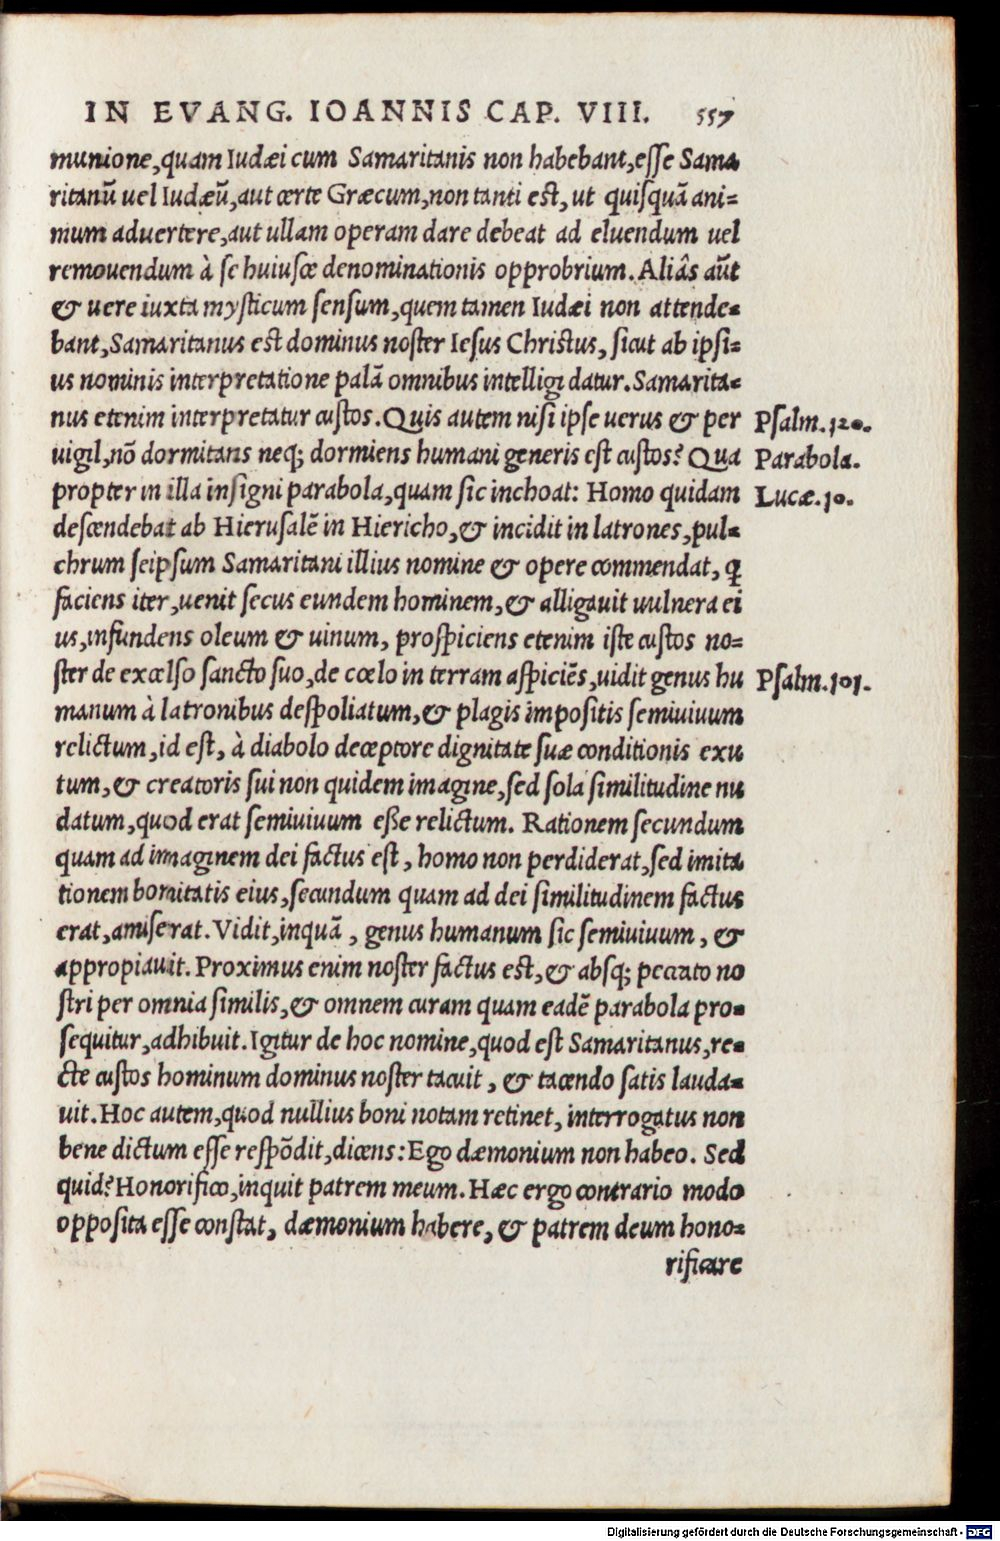 IN EVANG. IOANNIS CAP. VIII. 557
munione,quam Iudæi cum Samaritanis non habebant,esse Sama
ritanũ uel Iudæũ,aut certe Græcum,non tanti est, ut quisquã ani=
mum aduertere,aut ullam operam dare debeat ad eluendum uel
remouendum à se huiusce denominationis opprobrium. Aliâs aũt
& uere iuxta mysticum sensum,quem tamen Iudæi non attende=
bant,Samaritanus est dominus noster Iesus Christus, sicut ab ipsi=
us nominis interpretatione palã omnibus intelligi datur. Samarita=
nus etenim interpretatur custos. Quis autem nisi ipse uerus & per
Psalm.120.
uigil,nõ dormitans neq; dormiens humani generis est custos? Qua
Parabola.
propter in illa insigni parabola,quam sic inchoat: Homo quidam
Lucæ.10.
descendebat ab Hierusalẽ in Hiericho,& incidit in latrones,pul=
chrum seipsum Samaritani illius nomine & opere commendat, ꝗ
faciens iter,uenit secus eundem hominem,& alligauit uulnera ei
us,infundens oleum & uinum, prospiciens etenim iste custos no=
ster de excelso sancto suo,de cœlo in terram aspiciẽs,uidit genus hu
Psalm.101.
manum à latronibus despoliatum,& plagis impositis semiuiuum
relictum,id est, à diabolo deceptore dignitate suæ conditionis exu
tum,& creatoris sui non quidem imagine,sed sola similitudine nu
datum,quod erat semiuiuum esse relictum. Rationem secundum
quam ad imaginem dei factus est, homo non perdiderat,sed imita
tionem bonitatis eius,secundum quam ad dei similitudinem factus
erat,amiserat. Vidit,inquã, genus humanum sic semiuiuum, &
appropiauit. Proximus enim noster factus est,& absq; peccato no
stri per omnia similis,& omnem curam quam eadẽ parabola pro=
sequitur,adhibuit. Igitur de hoc nomine,quod est Samaritanus,re=
cte custos hominum dominus noster tacuit, & tacendo satis lauda=
uit. Hoc autem,quod nullius boni notam retinet, interrogatus non
bene dictum esse respõdit,dicens: Ego dæmonium non habeo. Sed
quid? Honorifico,inquit patrem meum. Hæc ergo contrario modo
opposita esse constat, dæmonium habere, & patrem deum hono=
rificare
Digitalisierung gefördert durch die Deutsche Forschungsgemeinschaft - DFG